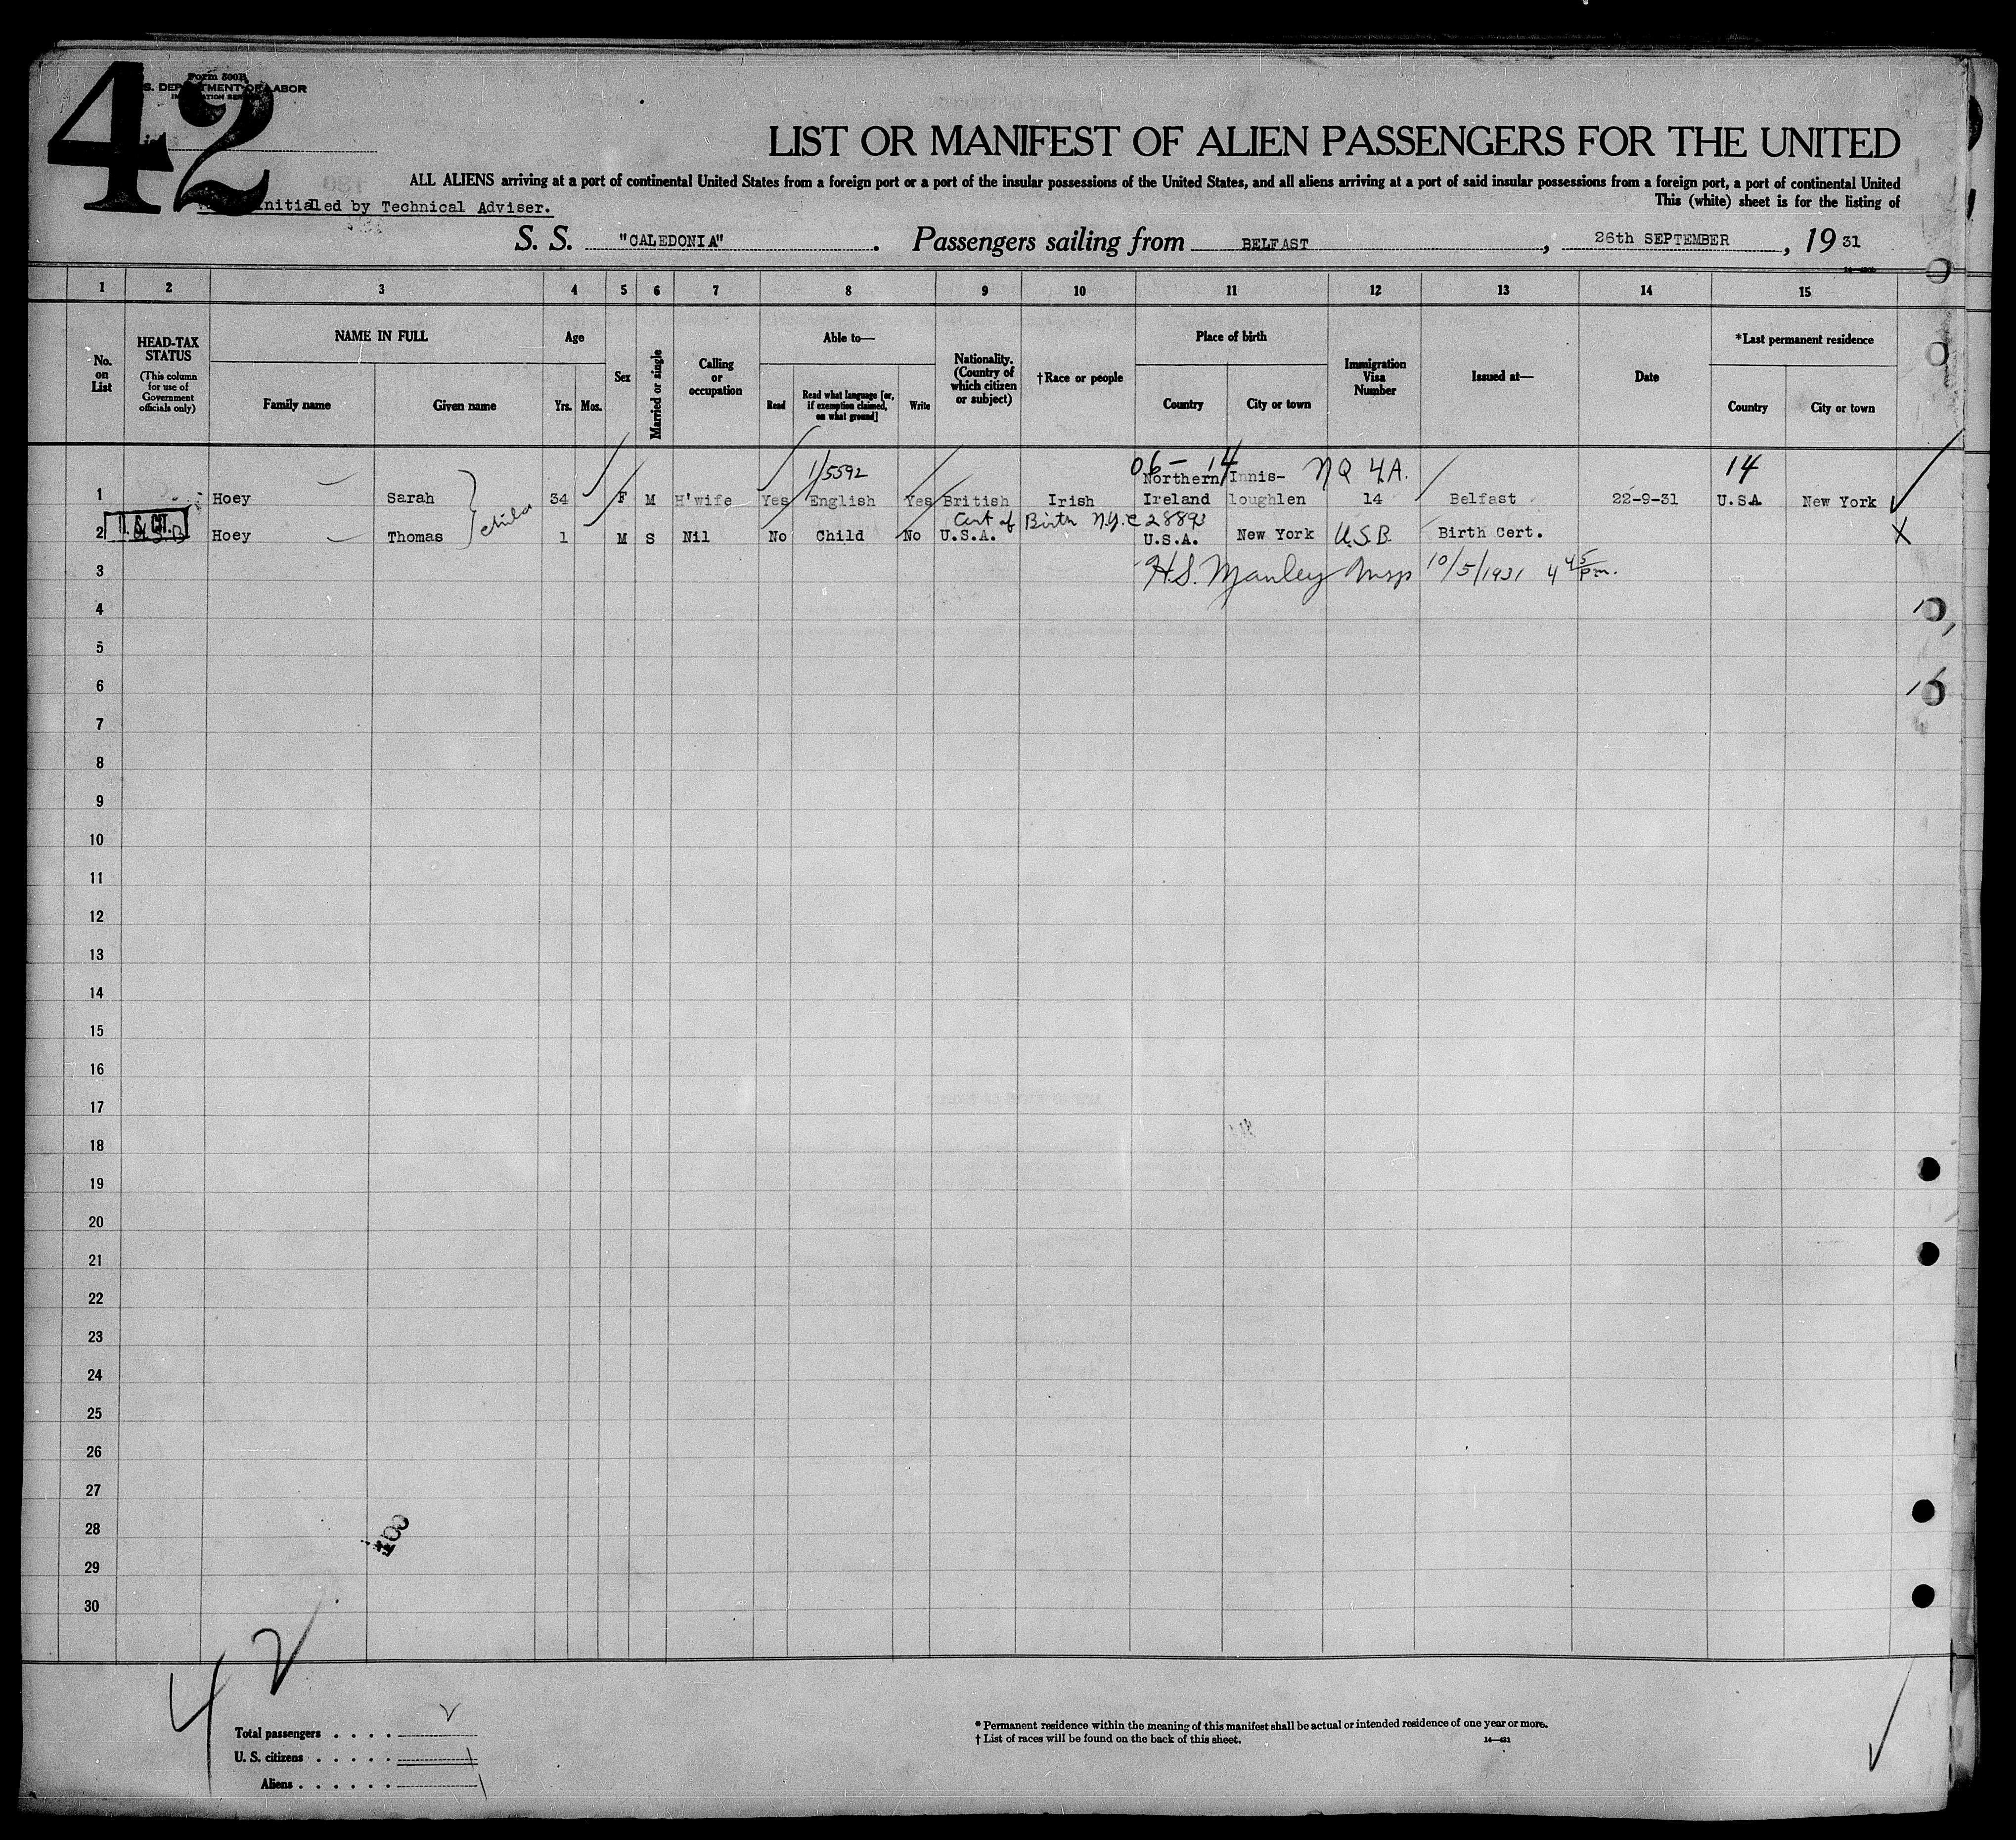 42
Form 500B
S. DEPARTMENT OF LABOR
LIST OR MANIFEST OF ALIEN PASSENGERS FOR THE UNITED
ALL ALIENS arriving at a port of continental United States from a foreign port or a port of the insular possessions of the United States, and all aliens arriving at a port of said insular possessions from a foreign port, a port of continental United
This (white) sheet is for the listing of
initialed by Technical Adviser.
S. S. "CALEDONIA". Passengers sailing from BELFAST, 26th SEPTEMBER, 1931
1 2 3 4 5 6 7 8 9 10 11 12 13 14 15
No. on List
HEAD-TAX STATUS
(This column for use of Government officials only)
NAME IN FULL
Family name Given name
Age
Yrs. Mos.
Sex
Married or single
Calling or occupation
Able to—
Read
Read what language [or, if exemption claimed, on what ground]
Write
Nationality. (Country of which citizen or subject)
†Race or people
Place of birth
Country City or town
Immigration Visa Number
Issued at—
Date
*Last permanent residence
Country City or town
1/5592 06- 14 NQ 4A. 14
Northern Innis-
1 Hoey Sarah 34 F M H'wife Yes English Yes British Irish Ireland loughlen 14 Belfast 22-9-31 U.S.A New York
child
Cert of Birth N.Y.C 28893
U. S. CIT.
2 Hoey Thomas 1 M S Nil No Child No U.S.A. U.S.A. New York U.S.B. Birth Cert. X
3 H.S. Manley Insp 10/5/1931 4 45 pm.
4
5
6
7
8
9
10
11
12
13
14
15
16
17
18
19
20
21
22
23
24
25
26
27
28
29
30
42
Total passengers . . . .
U. S. citizens . . . . . 1
Aliens . . . . . . 1
* Permanent residence within the meaning of this manifest shall be actual or intended residence of one year or more.
† List of races will be found on the back of this sheet.